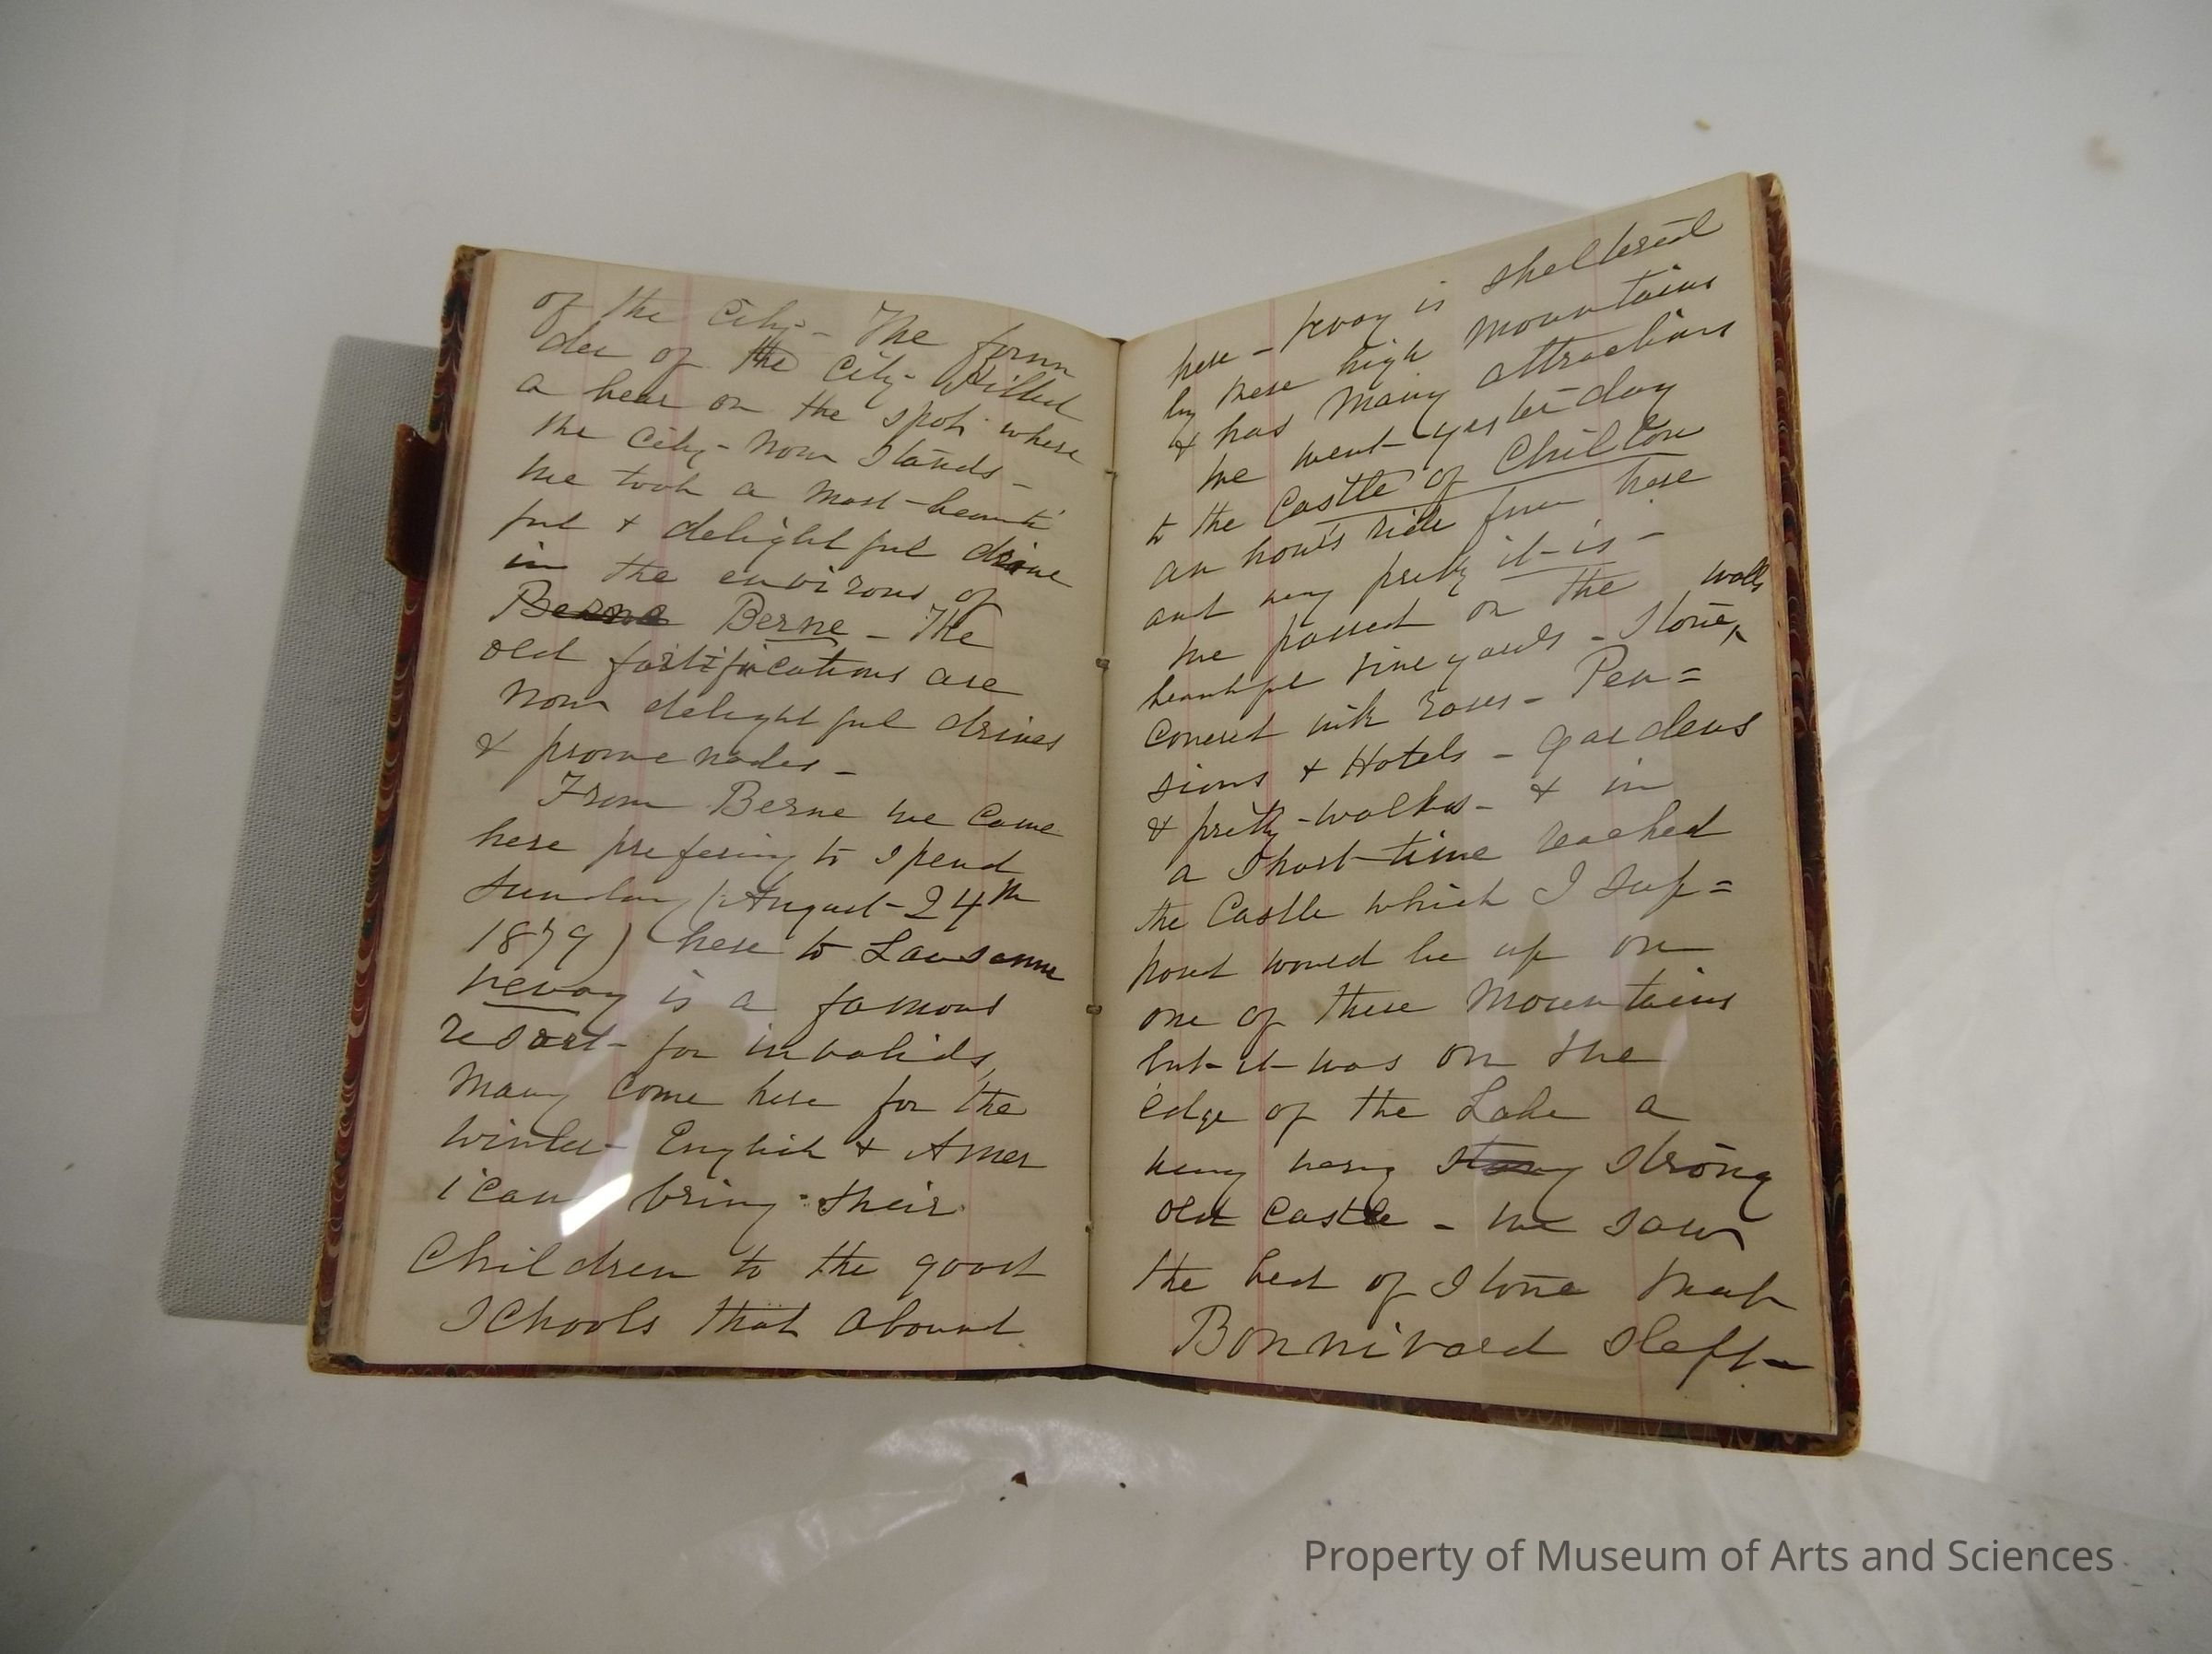 of the City - The foun
der of the City - Killed
a bear on the spot where
the City - now stands -
We took a most - beauti
ful & delightful drive
in the environs of
Berne Berne - The
old fortifications are
now delightful drives
& promenades -
From Berne we came
here prefering to spend
Sunday (August - 24th
1879) here to Lausanne
Vevay is a famous
resort - for invalids,
Many come here for the
winter - English & Amer
ican bring their
Children to the good
Schools that abound
here - Vevay is sheltered
by these high mountains
& has many attractions
We went - yesterday
to the Castle of Chillon
an hour's ride from here
and very pretty it - is -
We passed on the
beautiful vineyards - Stone, walls
covered with roses - Pen=
sions & Hotels - gardens
& pretty - walks - & in
a short - time reached
the Castle which I sup=
posed would be up on
one of these Mountains
but - it - was on the
edge of the Lake a
very very strong strong
old castle - We saw
the bed of Stone that
Bonnivard slept -
Property of Museum of Arts and Sciences